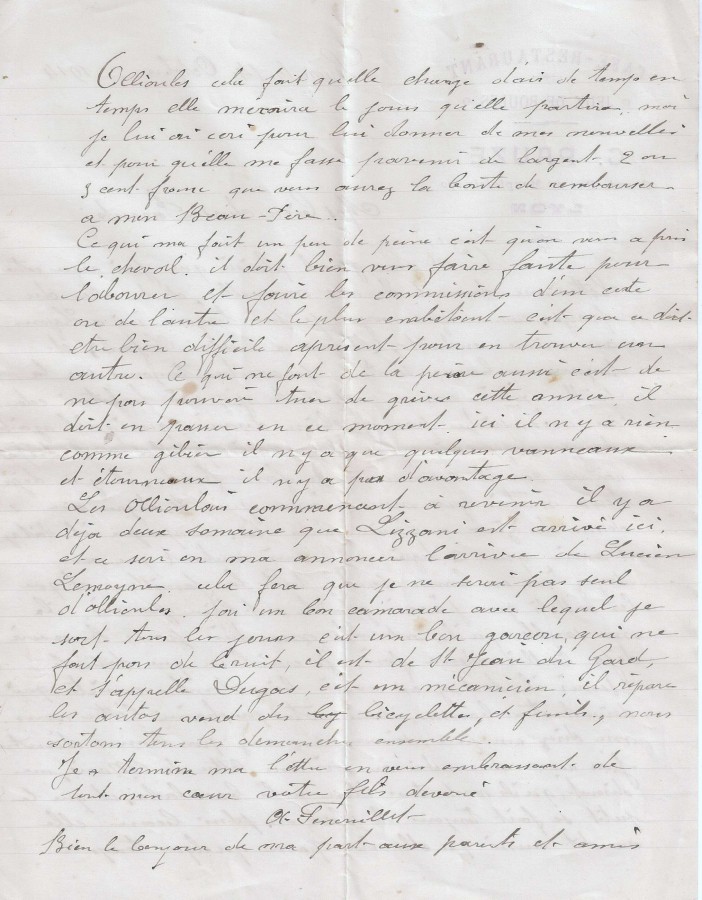 Ollioules cela fait qu'elle change d'ais de temp en
temps elle mécrira le jours qu'elle partira, moi
je lui ai ecri pour lui donner de mes nouvelles
et pour qu'elle me fasse parvenir de largent, 2 ou
3 cent franc que vous aurez la bonté de rembourser
a mon Beau-Père..
Ce qui ma fait un peu de peine c'est qu'on vous a pris
le cheval. il doit bien vous faire faute pour
labourer et faire les commissions d'un coté
ou de l'autre et le plus embêtant c'est que ce doit
etre bien difficile apresent pour en trouver un
autre. Ce qui me fait de la peine aussi c'est de
ne pas pouvoir tuer de grives cette année, il
doit en passer en ce moment, ici il n'y a rien
comme gibier il n'y a que quelques vanneaux
et étourneaux il n'y a pas d'avantage.
Les Ollioulais commencent à revenir il y a
déja deux semaine que Lizzani est arrivé ici,
et ce soir on ma annoncer l'arrivée de Lucien
Lemoyne, cela fera que je ne serai pas seul
d'ollioules, j'ai un bon camarade avec lequel je
sort tous les jours c'est un bon garçon, qui ne
fait pas de bruit, il est de St Jean du Gard,
et s'appelle Dugas, c'est un mécanicien, il répare
les autos vend des bicyclettes, et fusils, nous
sortons tous les dimanches ensemble.
Je termine ma lettre en vous embrassant de
tout mon cœur votre fils devoué
Bien le bonjour de ma part aux parents et amis